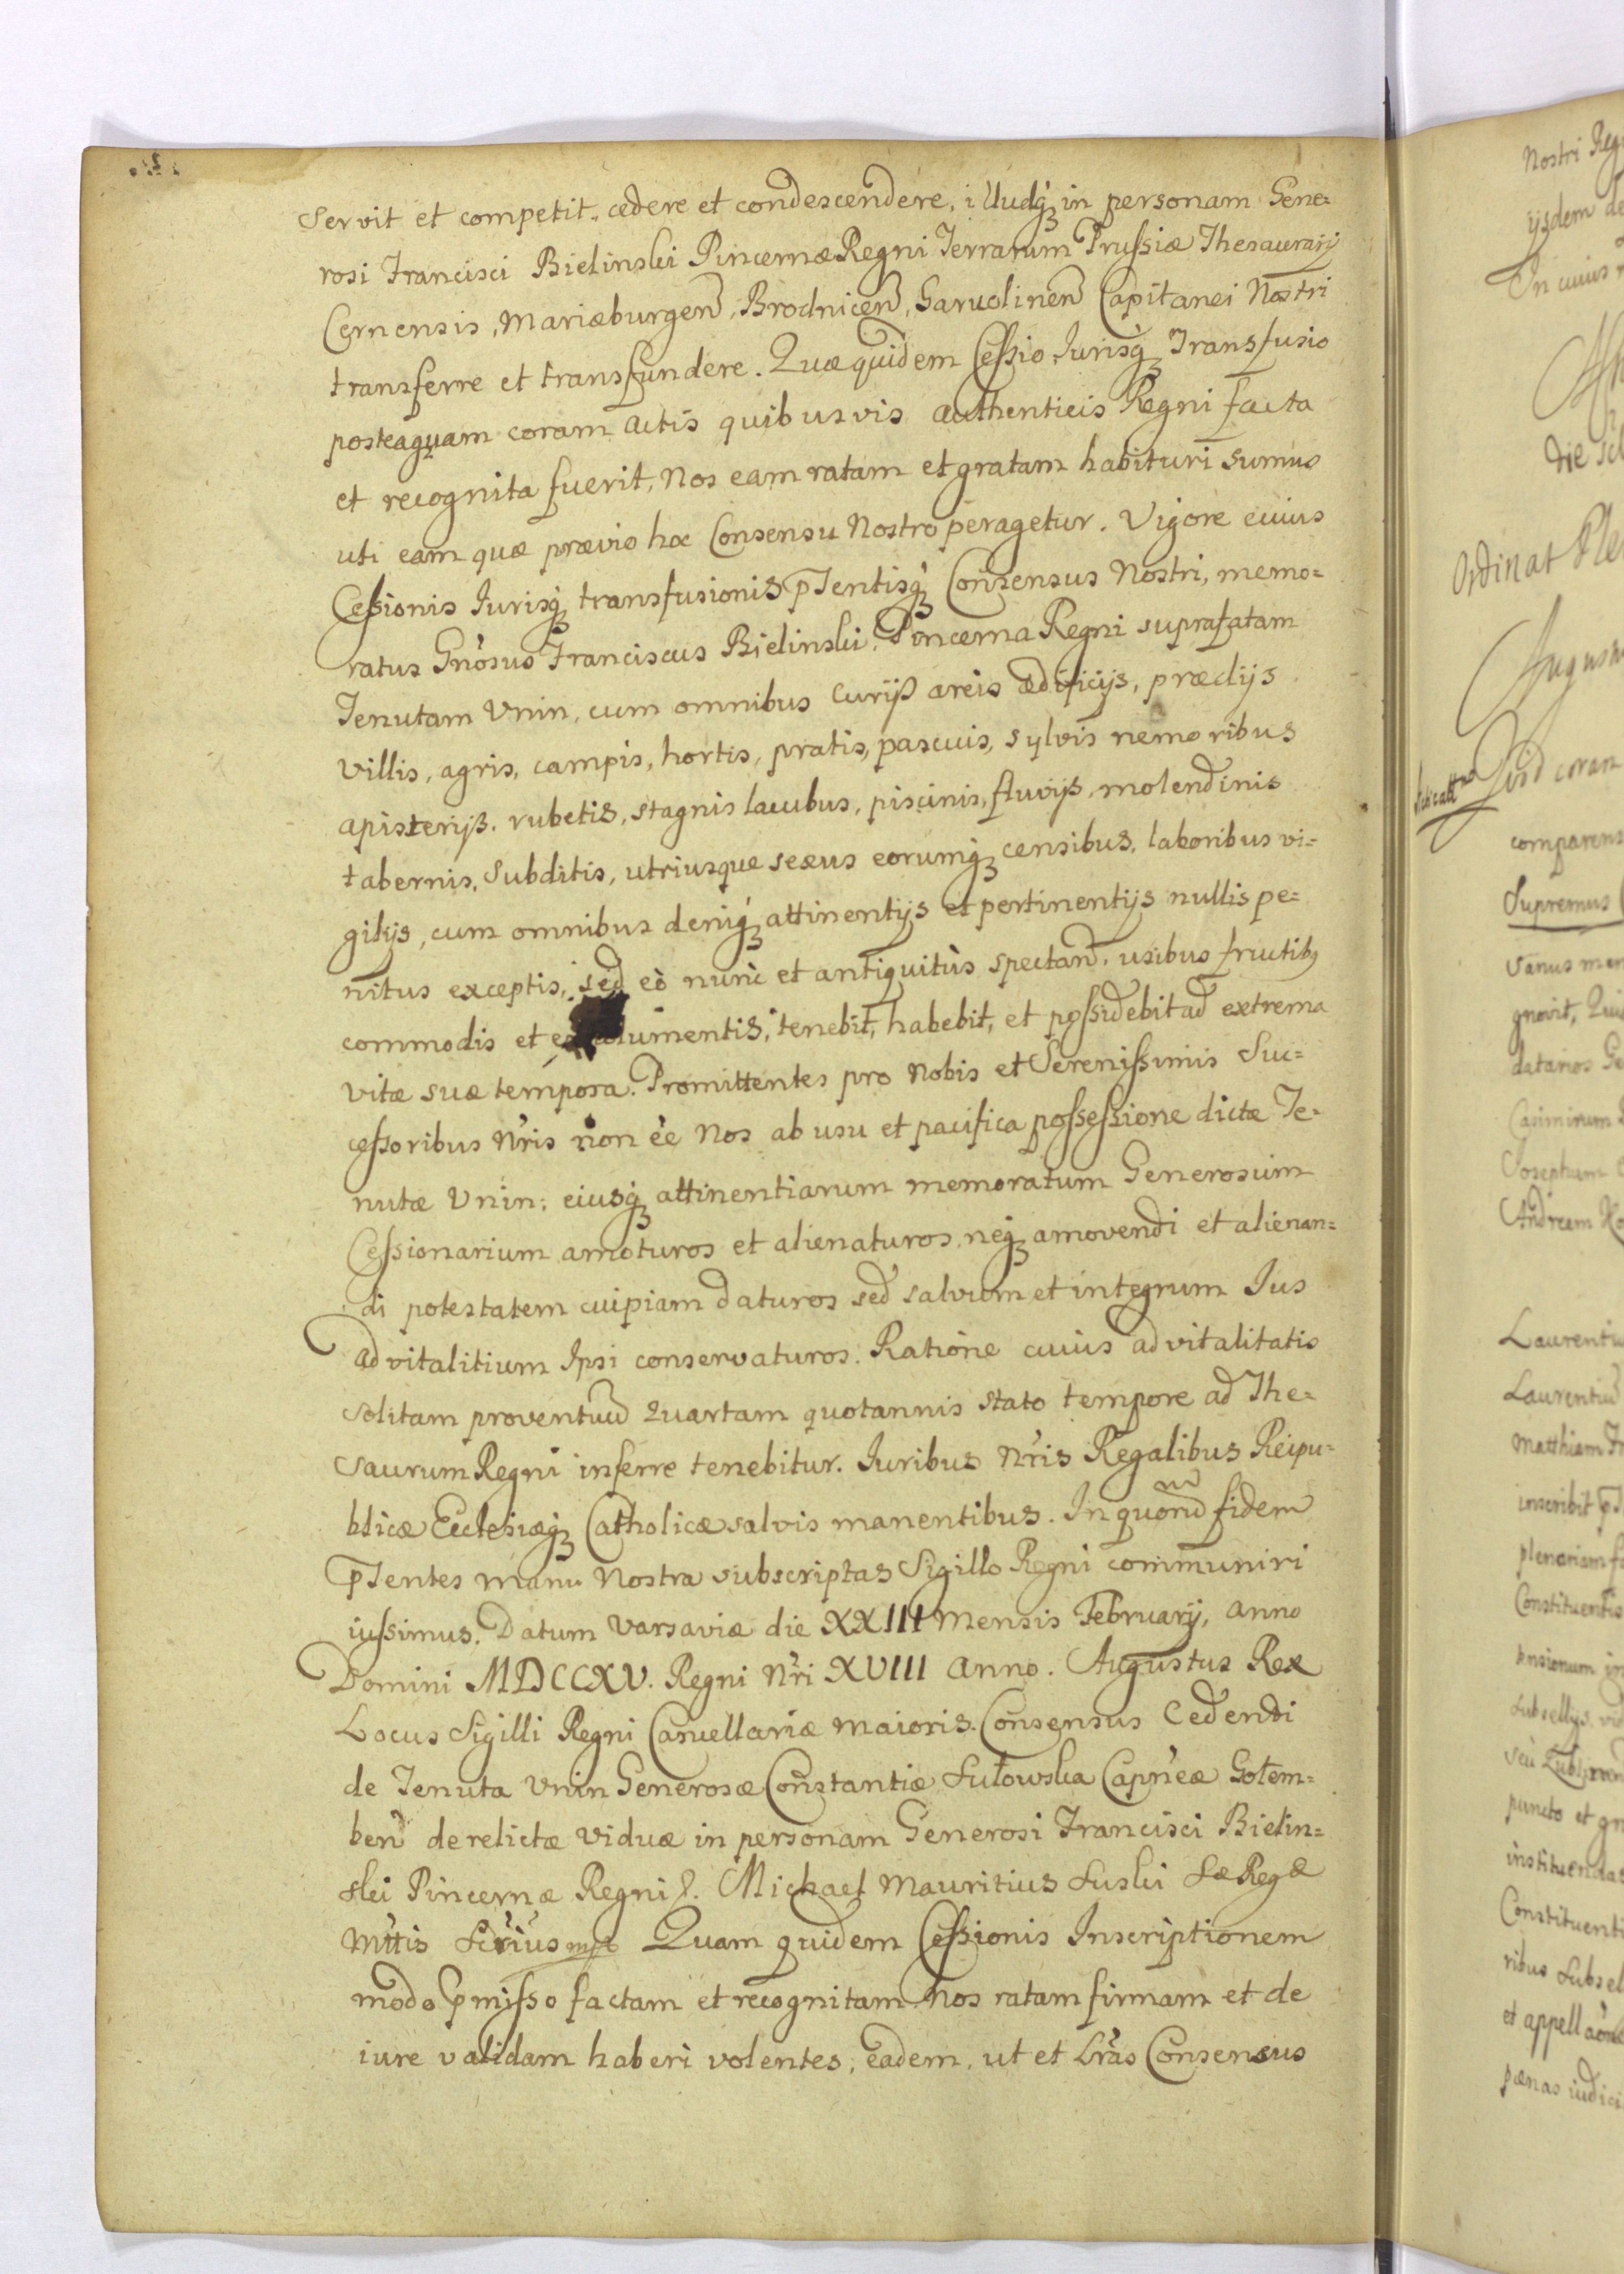 servit et competit, cedere et condescendere, illudq in personam Gene=
rosi Francisci Bielinski Pincernæ Regni Terrarum Prussiæ Thesaurarij
Cernensis, Mariæburgen, Brodnicen, Garvolinen Capitanei Nostri
transferre et transfundere. Quæ quidem Cessio Jurisq Transfusio
posteaquam coram actis quibusvis authenticis Regni facta
et recognita fuerit, Nos eam ratam et gratam habituri sumus
uti eam quæ prævio hoc Consensu Nostro peragetur. Vigore cuius
Cessionis Jurisq transfusionis pntentisq Consensus Nostri, memo=
ratus Gnosus Franciscus Bielinski Pincerna Regni suprafatam
Tenutam Unin, cum omnibus curijs areis ædificijs, prædijs
villis, agris, campis, hortis, pratis, pascuis, sylvis nemoribus
apisterijs, rubetis, stagnis lacubus, piscinis, fluvijs, molendinis
tabernis, subditis, utriusque sexus eorumq censibus, laboribus vi=
gilijs, cum omnibus deniq attinentijs et pertinentijs nullis pe=
nitus exceptis, sed eò nunc et antiquitùs spectan. usibus fructibq
commodis et emolumentis, tenebit, habebit, et possidebit ad extrema
vitæ suæ tempora. Promittentes pro Nobis et Serenissimis Suc=
cessoribus Nris non èe Nos ab usu et pacifica possessione dictæ Te=
nutæ Unin; eiusq attinentiarum memoratum Generosum
Cessionarium amoturos et alienaturos, neq amovendi et alienan=
di potestatem cuipiam daturos sed salvum et integrum Jus
advitalitium Ipsi conservaturos. Ratione cuius advitalitatis
solitam proventuu quartam quotannis stato tempore ad The=
saurum Regni inferre tenebitur. Juribus Nris Regalibus Reipu=
blicæ Ecclesiæq Catholicæ salvis manentibus. In quoru fidem
pntentes manu Nostra subscriptas Sigillo Regni communiri
iussimus. Datum Varsaviæ die XXIII Mensis Februarij, anno
Domini MDCCXV. Regni Nri XVIII anno. Augustus Rex
Locus Sigilli Regni Cancellariæ Maioris. Consensus Cedendi
de Tenuta Unin Generosæ Constantiæ Sułowska Capneæ Gołem=
ben derelictæ viduæ in personam Generosi Francisci Bielin=
ski Pincernæ Regni Michael Mauritius Suski Sæ Regæ
Mttis Scrius mp Quam quidem Cessionis Inscriptionem
modo pmisso factam et recognitam Nos ratam firmam et de
iure validam haberi volentes, eadem, ut et Lras Consensus
Nostri Reg
ijsdem de
In cuius
die
Ordinat
August
coram
comparens
Supremus
vanus men
gnovit,
datarios Ge
Casimirum
Josephum
Andream Ko
Laurentiu
Laurentiu
Matthiam
inscribit
plenariam fa
Constituentis
in
Subsellijs
seu
puncto et gn
instituendas
Constituenti
ribus Subsel
et appell
pænas iudici